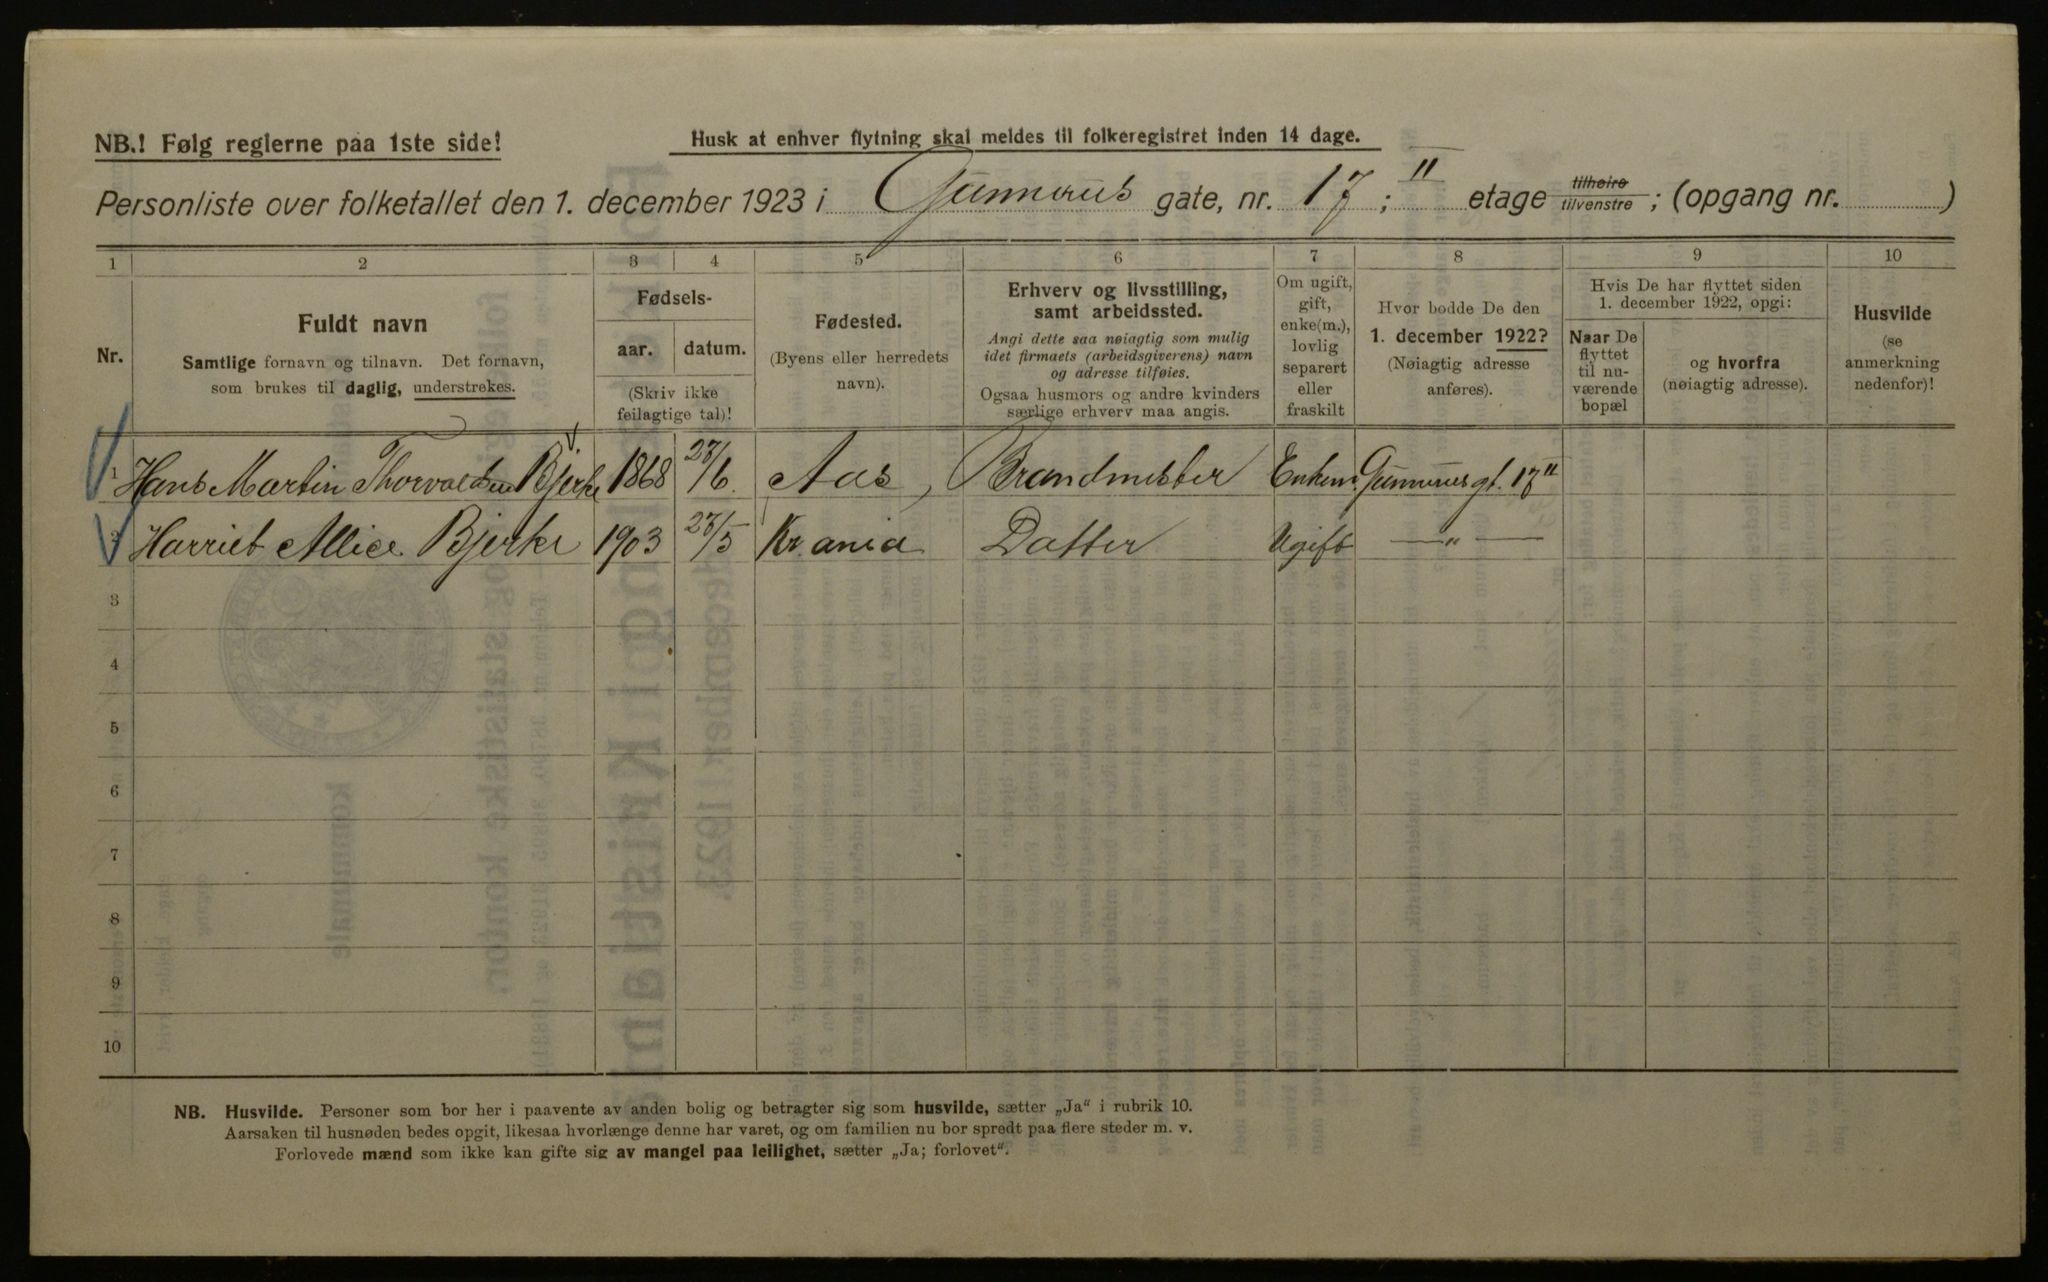 NB.! Følg reglerne paa 1ste side!
Husk at enhver flytning skal meldes til folkeregistret inden 14 dage.
Personliste over folketallet den 1. december 1923 i Gunnerus gate, nr. 17; II etage tilhøire tilvenstre; (opgang nr. )
1 2 3 4 5 6 7 8 9 10
Nr.
Fuldt navn
Samtlige fornavn og tilnavn. Det fornavn,
som brukes til daglig, understrekes.
Fødsels-
aar. datum.
(Skriv ikke
feilagtige tal)!
Fødested.
(Byens eller herredets
navn).
Erhverv og livsstilling,
samt arbeidssted.
Angi dette saa nøiagtig som mulig
idet firmaets (arbeidsgiverens) navn
og adresse tilføies.
Ogsaa husmors og andre kvinders
særlige erhverv maa angis.
Om ugift,
gift,
enke(m.),
lovlig
separert
eller
fraskilt
Hvor bodde De den
1. december 1922?
(Nøiagtig adresse
anføres).
Hvis De har flyttet siden
1. december 1922, opgi:
Naar De
flyttet
til nu-
værende
bopæl
og hvorfra
(nøiagtig adresse).
Husvilde
(se
anmerkning
nedenfor)!
1 Hans Martin Thorvaldsen Bjerke 1868 27/6 Aas, Brandmester Enkem. Gunnerusgt. 17 II
2 Harriet Allice Bjerke 1903 27/5 Kr.ania Datter Ugift — „ —
3
4
5
6
7
8
9
10
NB. Husvilde. Personer som bor her i paavente av anden bolig og betragter sig som husvilde, sætter „Ja“ i rubrik 10.
Aarsaken til husnøden bedes opgit, likesaa hvorlænge denne har varet, og om familien nu bor spredt paa flere steder m. v.
Forlovede mænd som ikke kan gifte sig av mangel paa leilighet, sætter „Ja; forlovet“.